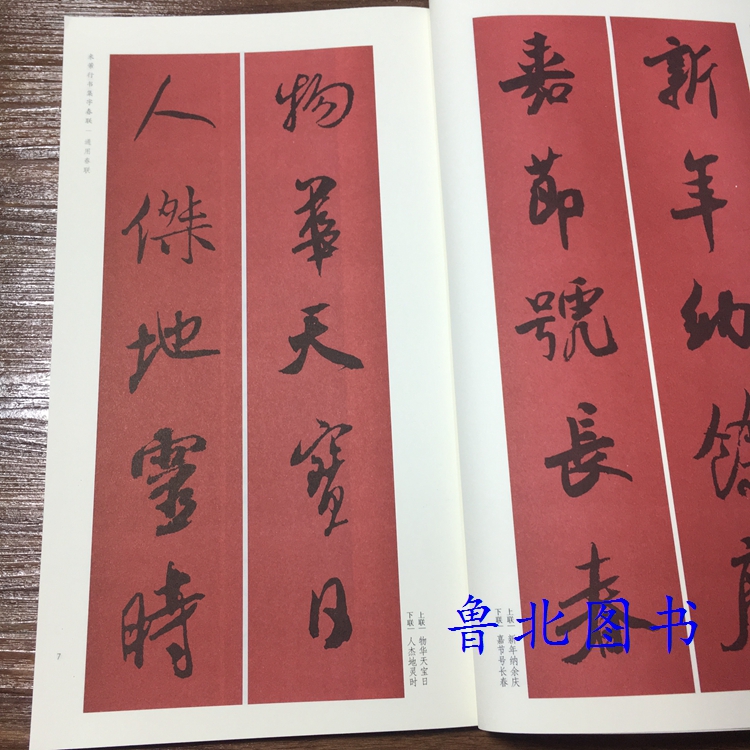 米芾行书集字春联 | 通用春联
物華天寶日
人傑地靈時
上联 | 物华天宝日
下联 | 人杰地灵时
7
新年納餘慶
嘉節號長春
上联 | 新年纳余庆
下联 | 嘉节号长春
鲁北图书